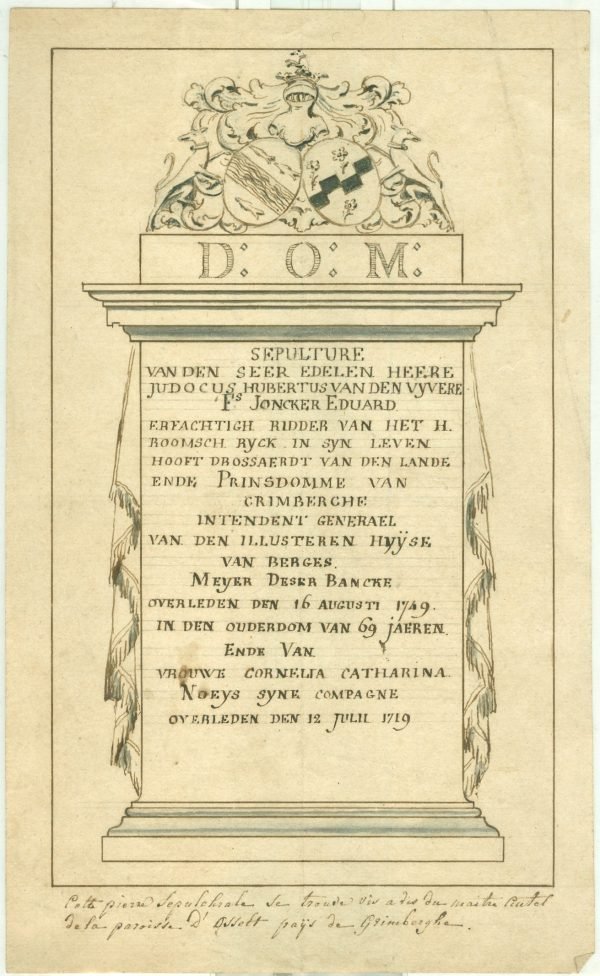 D: O: M:
SEPULTURE
VAN DEN SEER EDELEN HEERE
JUDOCUS HUBERTUS VAN DEN VYVERE
Fs JONCKER EDUARD
ERFACHTIGH RIDDER VAN HET H.
ROOMSCH RYCK IN SYN LEVEN
HOOFT DROSSAERDT VAN DEN LANDE
ENDE PRINSDOMME VAN
GRIMBERGHE
INTENDENT GENERAEL
VAN DEN ILLUSTEREN HUŸSE
VAN BERGES.
MEYER DESER BANCKE
OVERLEDEN DEN 16 AUGUSTI 1749.
IN DEN OUDERDOM VAN 69 JAEREN.
ENDE VAN
VROUWE CORNELIA CATHARINA.
NOEYS SYNE COMPAGNE
OVERLEDEN DEN 12 JULII 1719
Cette pierre Sepulchrale se trouve vis a vis du maitre Autel
de la paroisse D'Osselt paÿs de Grimberghe.